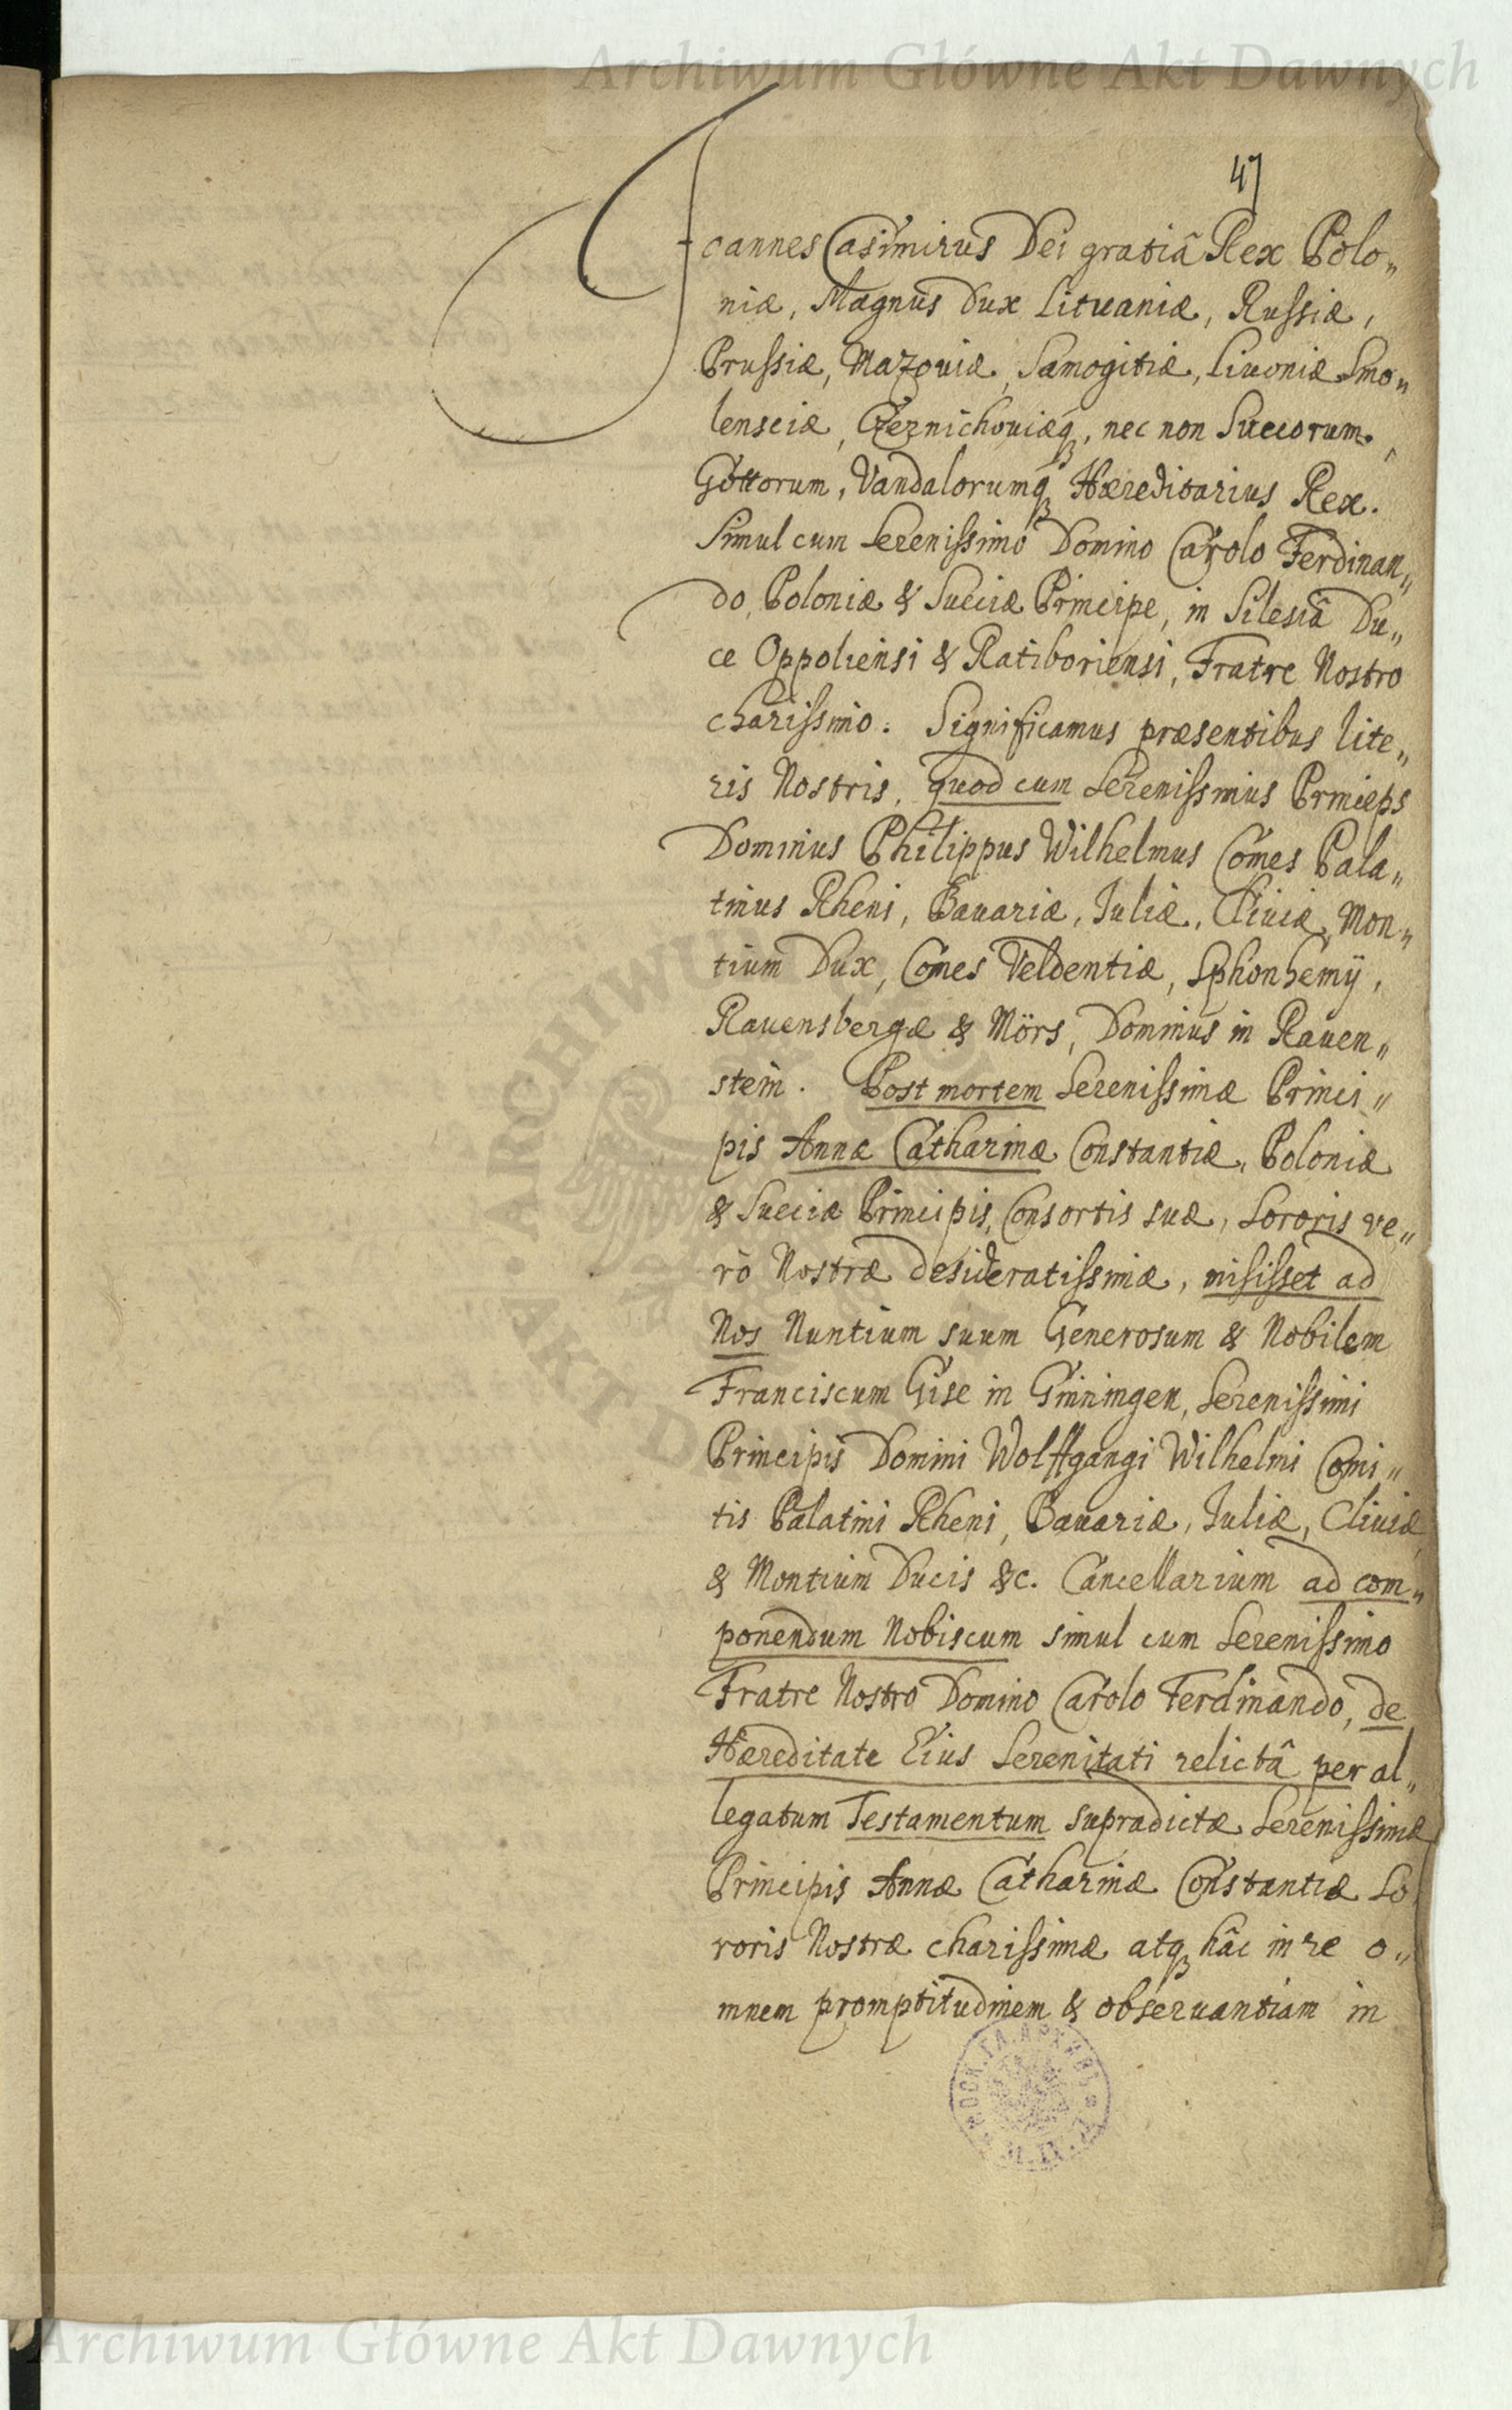 Archiwum Główne Akt Dawnych
47
Joannes Casimirus Dei gratiâ Rex Polo„
niæ, Magnus Dux Lituaniæ, Russiæ,
Prussiæ, Mazouiæ, Samogitiæ, Liuoniæ Smo„
lensciæ, Czernichouiæq₃, nec non Suecorum,
Gottorum, Vandalorumq₃ Hæreditarius Rex.
Simul cum Serenissimo Domino Carolo Ferdinan„
do, Poloniæ & Sueciæ Principe, in Silesiâ Du„
ce Oppoliensi & Ratiboriensi, Fratre Nostro
charissimo. Significamus præsentibus lite„
ris Nostris, quod cum Serenissimus Princeps
Dominus Philippus Wilhelmus Comes Pala„
tinus Rheni, Bauariæ, Juliæ, Cliuiæ, Mon„
tium Dux, Comes Veldentiæ, Sphonhemÿ,
Rauensbergæ & Mörs, Dominus in Rauen„
stein. Post mortem Serenissimæ Princi„
pis Annæ Catharinæ Constantiæ, Poloniæ
& Sueciæ Principis, Consortis suæ, Sororis ve„
rò Nostræ desideratissimæ, misisset ad
Nos Nuntium suum Generosum & Nobilem
Franciscum Gise in Ginningen, Serenissimi
Principis Domini Wolffgangi Wilhelmi Comi„
tis Palatini Rheni, Bauariæ, Juliæ, Cliuiæ
& Montium Ducis &c. Cancellarium ad com„
ponendum Nobiscum simul cum Serenissimo
Fratre Nostro Domino Carolo Ferdinando, de
Hæreditate Eius Serenitati relictâ per al„
legatum Testamentum supradictæ Serenissimæ
Principis Annæ Catharinæ Constantiæ So„
roris Nostræ charissimæ atq₃ hâc in re o„
mnem promptitudinem & obseruantiam in
Archiwum Główne Akt Dawnych